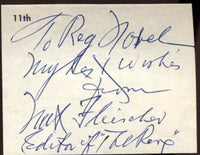 11th
To Reg Novel
My Best Wishes
from
Nat Fleischer
Editor of "The Ring"